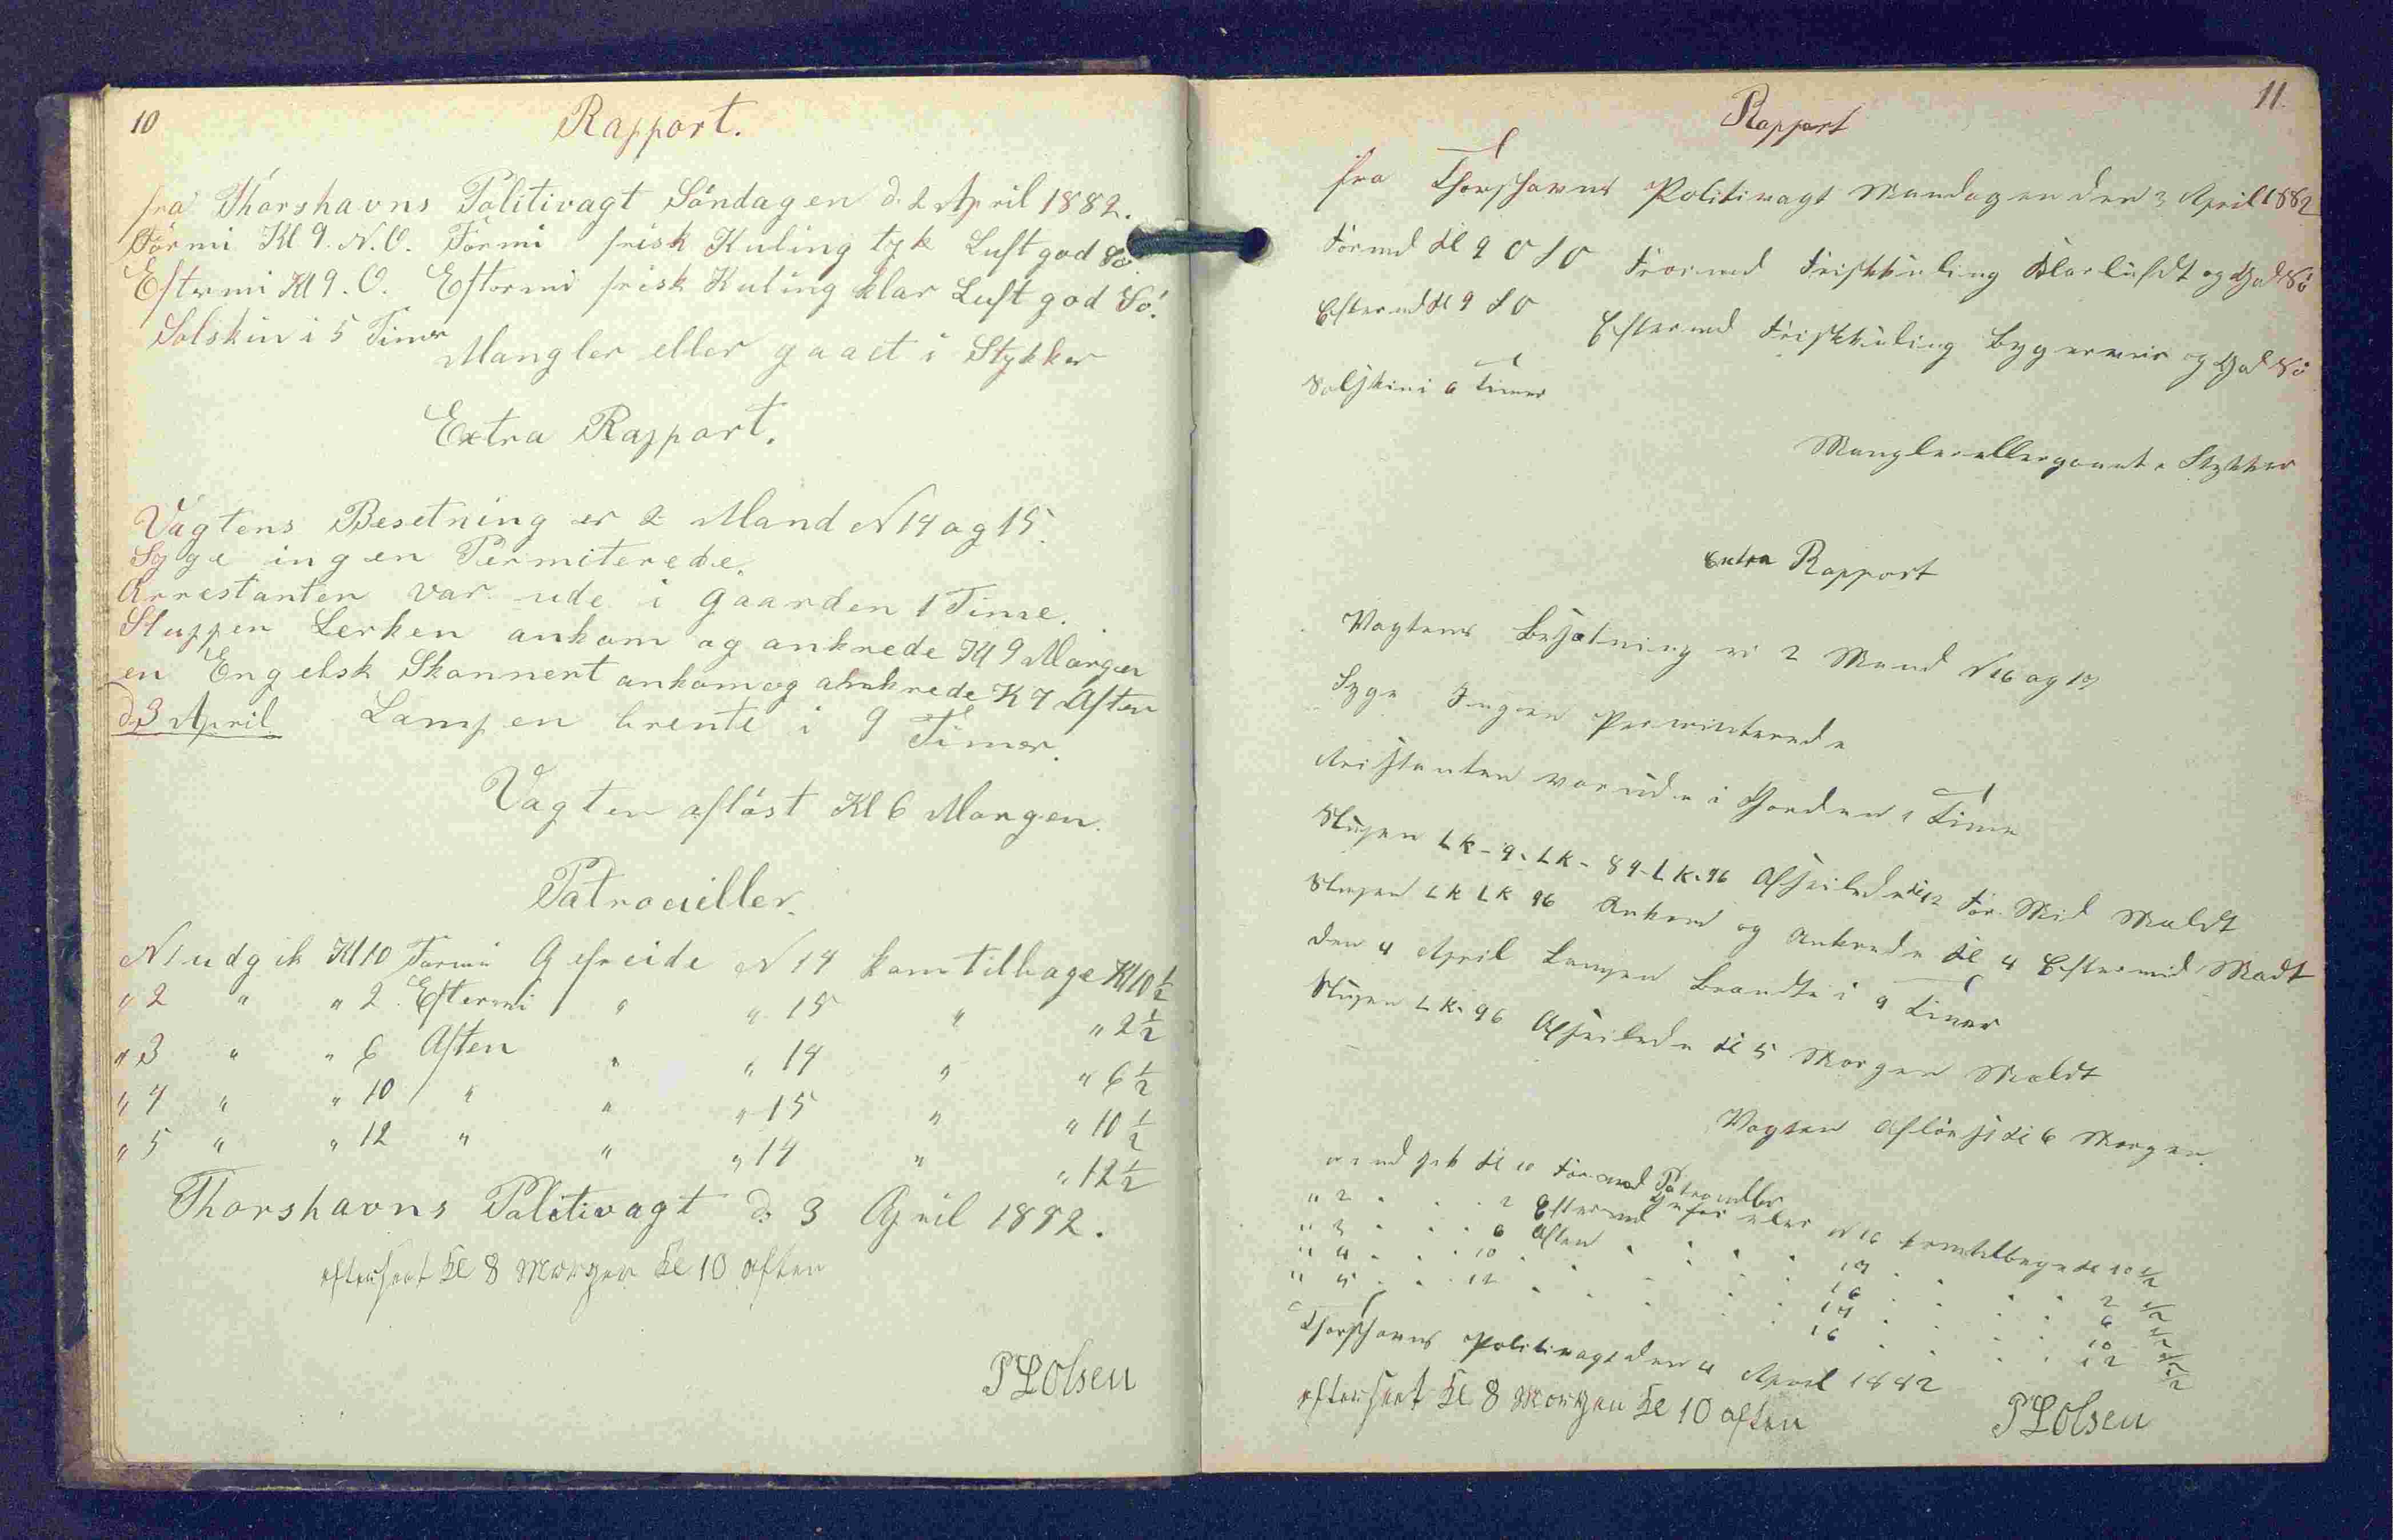 10
Rapport.
fra Thorshavns Politivagt Söndagen d. 2 April 1882.
Formi Kl 9. N.O. Formi frisk Kuling tyk Luft god Sö.
Eftermi Kl 9. O. Eftermi frisk Kuling klar Luft god Sö.
Solskin i 5 Timer
Mangler eller gaaet i Stykker
Extra Rapport.
Vagtens Besetning er 2 Mand N 14 og 15.
Syge ingen Permiterede.
Arrestanten var ude i Gaarden 1 Time.
Sluppen Lerken ankom og ankrede Kl 9 Morgen
en Engelsk Skonnert ankom og ankrede K 7 Aften
d. 3 April Lampen brente i 9 Timer.
Vagten aflöst Kl 6 Morgen.
Patrouiller.
N 1 udgik Kl 10 Formi Gefreide N 14 kom tilbage Kl 10 1/2
" 2 " " 2 Eftermi " " 15 " " 2 1/2
" 3 " " 6 Aften " " 14 " " 6 1/2
" 4 " " 10 " " " 15 " " 10 1/2
" 5 " " 12 " " " 14 " " 12 1/2
Thorshavns Politivagt d. 3 April 1882.
efterseet Kl 8 Morgen Kl 10 Aften
P L Olsen
11.
Rapport
fra Thorshavns Politivagt Mandagen den 3 April 1882
Formd Kl 9 O S O Formd Friskkuling Klarlufdt og God Sö
Eftermd Kl 9 S O Eftermd Friskkuling Bygerveir og God Sö
Solskin i 6 Timer
Mangler eller gaaet i Stykker
Extra Rapport
Vagtens Besætning er 2 Mand N 16 og 17
Syge Ingen Permiterede
Aristanten var ude i Gorden 1 Time
Slupen LK-9. LK-89-LK.96 Afseilede Kl 12 For Mid Maldt
Slupen LK LK 96 Ankom og Ankrede Kl 4 Eftermid Madt
Den 4 April Lampen Brandte i 9 Timer
Slupen LK.96 Afseilede Kl 5 Morgen Maldt
Vagten Aflöest Kl 6 Morgen.
Patrouller
N 1 ud gik Kl 10 Formd N 16 kom tilbage Kl 10 1/2
" 2 " " 2 Eftermd " " 17 " " 2 1/2
" 3 " " 6 Aften " " 16 " " 6 1/2
" 4 " " 10 " " " 17 " " 10 1/2
" 5 " " 12 " " " 16 " " 12 1/2
Thorshavns Politivagt den 4 April 1882
efterseet Kl 8 Morgen Kl 10 Aften
P L Olsen